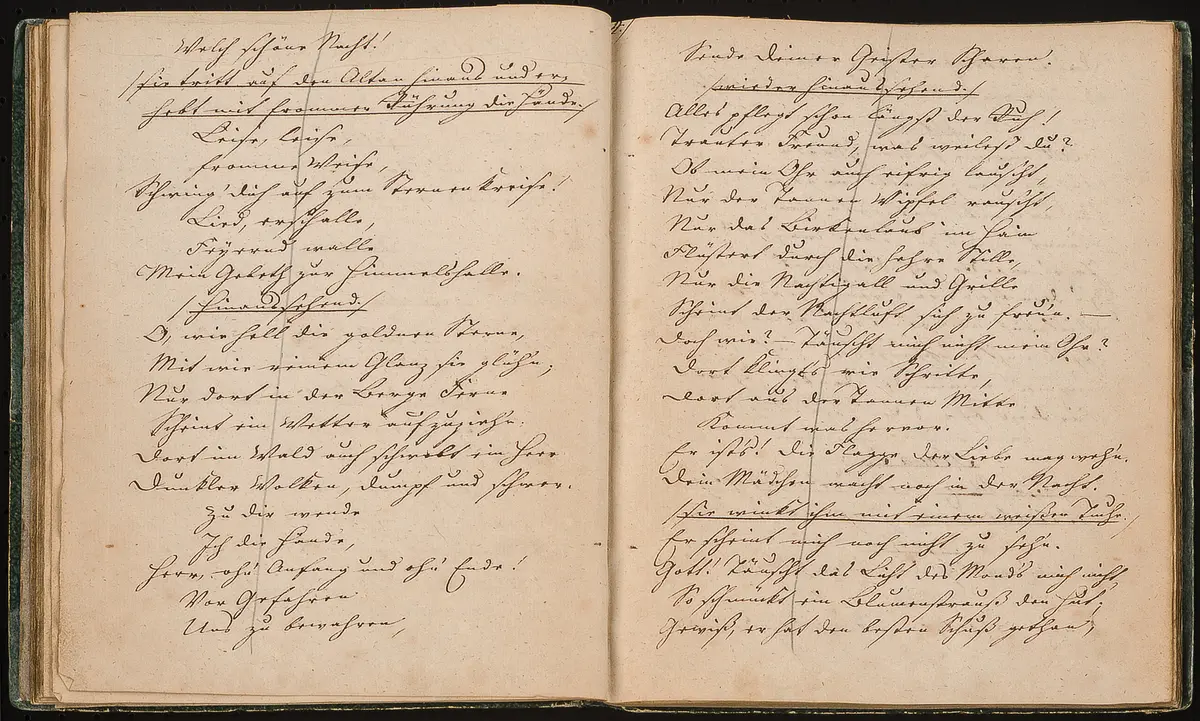 Welch schöne Nacht!
/:sie tritt auf den Altan hinaus und er-
hebt mit frommer Rührung die Hände:/
Leise, leise,
fromme Weise,
Schwing' dich auf zum Sternenkreise!
Lied, erschalle,
Feyernd walle
Mein Gebeth zur Himmelshalle.
/:hinaussehend:/
O, wie hell die goldnen Sterne,
Mit wie reinem Glanz sie glühn;
Nur dort in der Berge Ferne
Scheint ein Wetter aufzuziehn.
Dort im Wald auch schwebt ein Heer
Dunkler Wolken, dumpf und schwer.
Zu dir wende
Ich die Hände,
Herr, ohn' Anfang und ohn' Ende!
Vor Gefahren
Uns zu bewahren,
Sende Deiner Geister Scharen!
/:wieder hinaussehend:/
Alles pflegt schon längst der Ruh!
Trauter Freund, was weilest du?
Ob mein Ohr auch eifrig lauscht,
Nur der Tannen Wipfel rauscht,
Nur das Birkenlaub im Hain
Flüstert durch die hehre Stille,
Nur die Nachtigall und Grille
Scheint der Nachtluft sich zu freu'n. —
Doch wie? — Täuscht mich nicht mein Ohr?
Dort klingt's wie Schritte,
Dort aus der Tannen Mitte
Kommt was hervor.
Er ist's! Die Flagge der Liebe mag wehn.
Dein Mädchen wacht noch in der Nacht.
/:sie winkt ihm mit einem weißen Tuche:/
Er scheint mich noch nicht zu sehn.
Gott! Täuscht das Licht des Monds mich nicht,
So schmückt ein Blumenstrauß den Hut;
Gewiß, er hat den besten Schuß gethan;